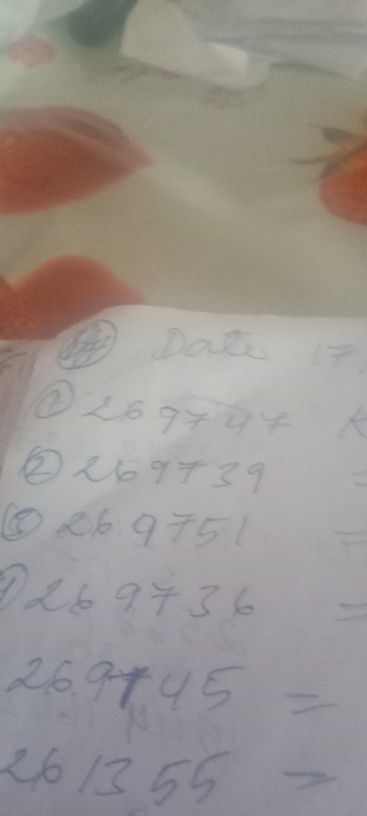 Date 17
① 269747 K
② 269739 =
③ 269751 =
269736 =
269745 =
261355 =